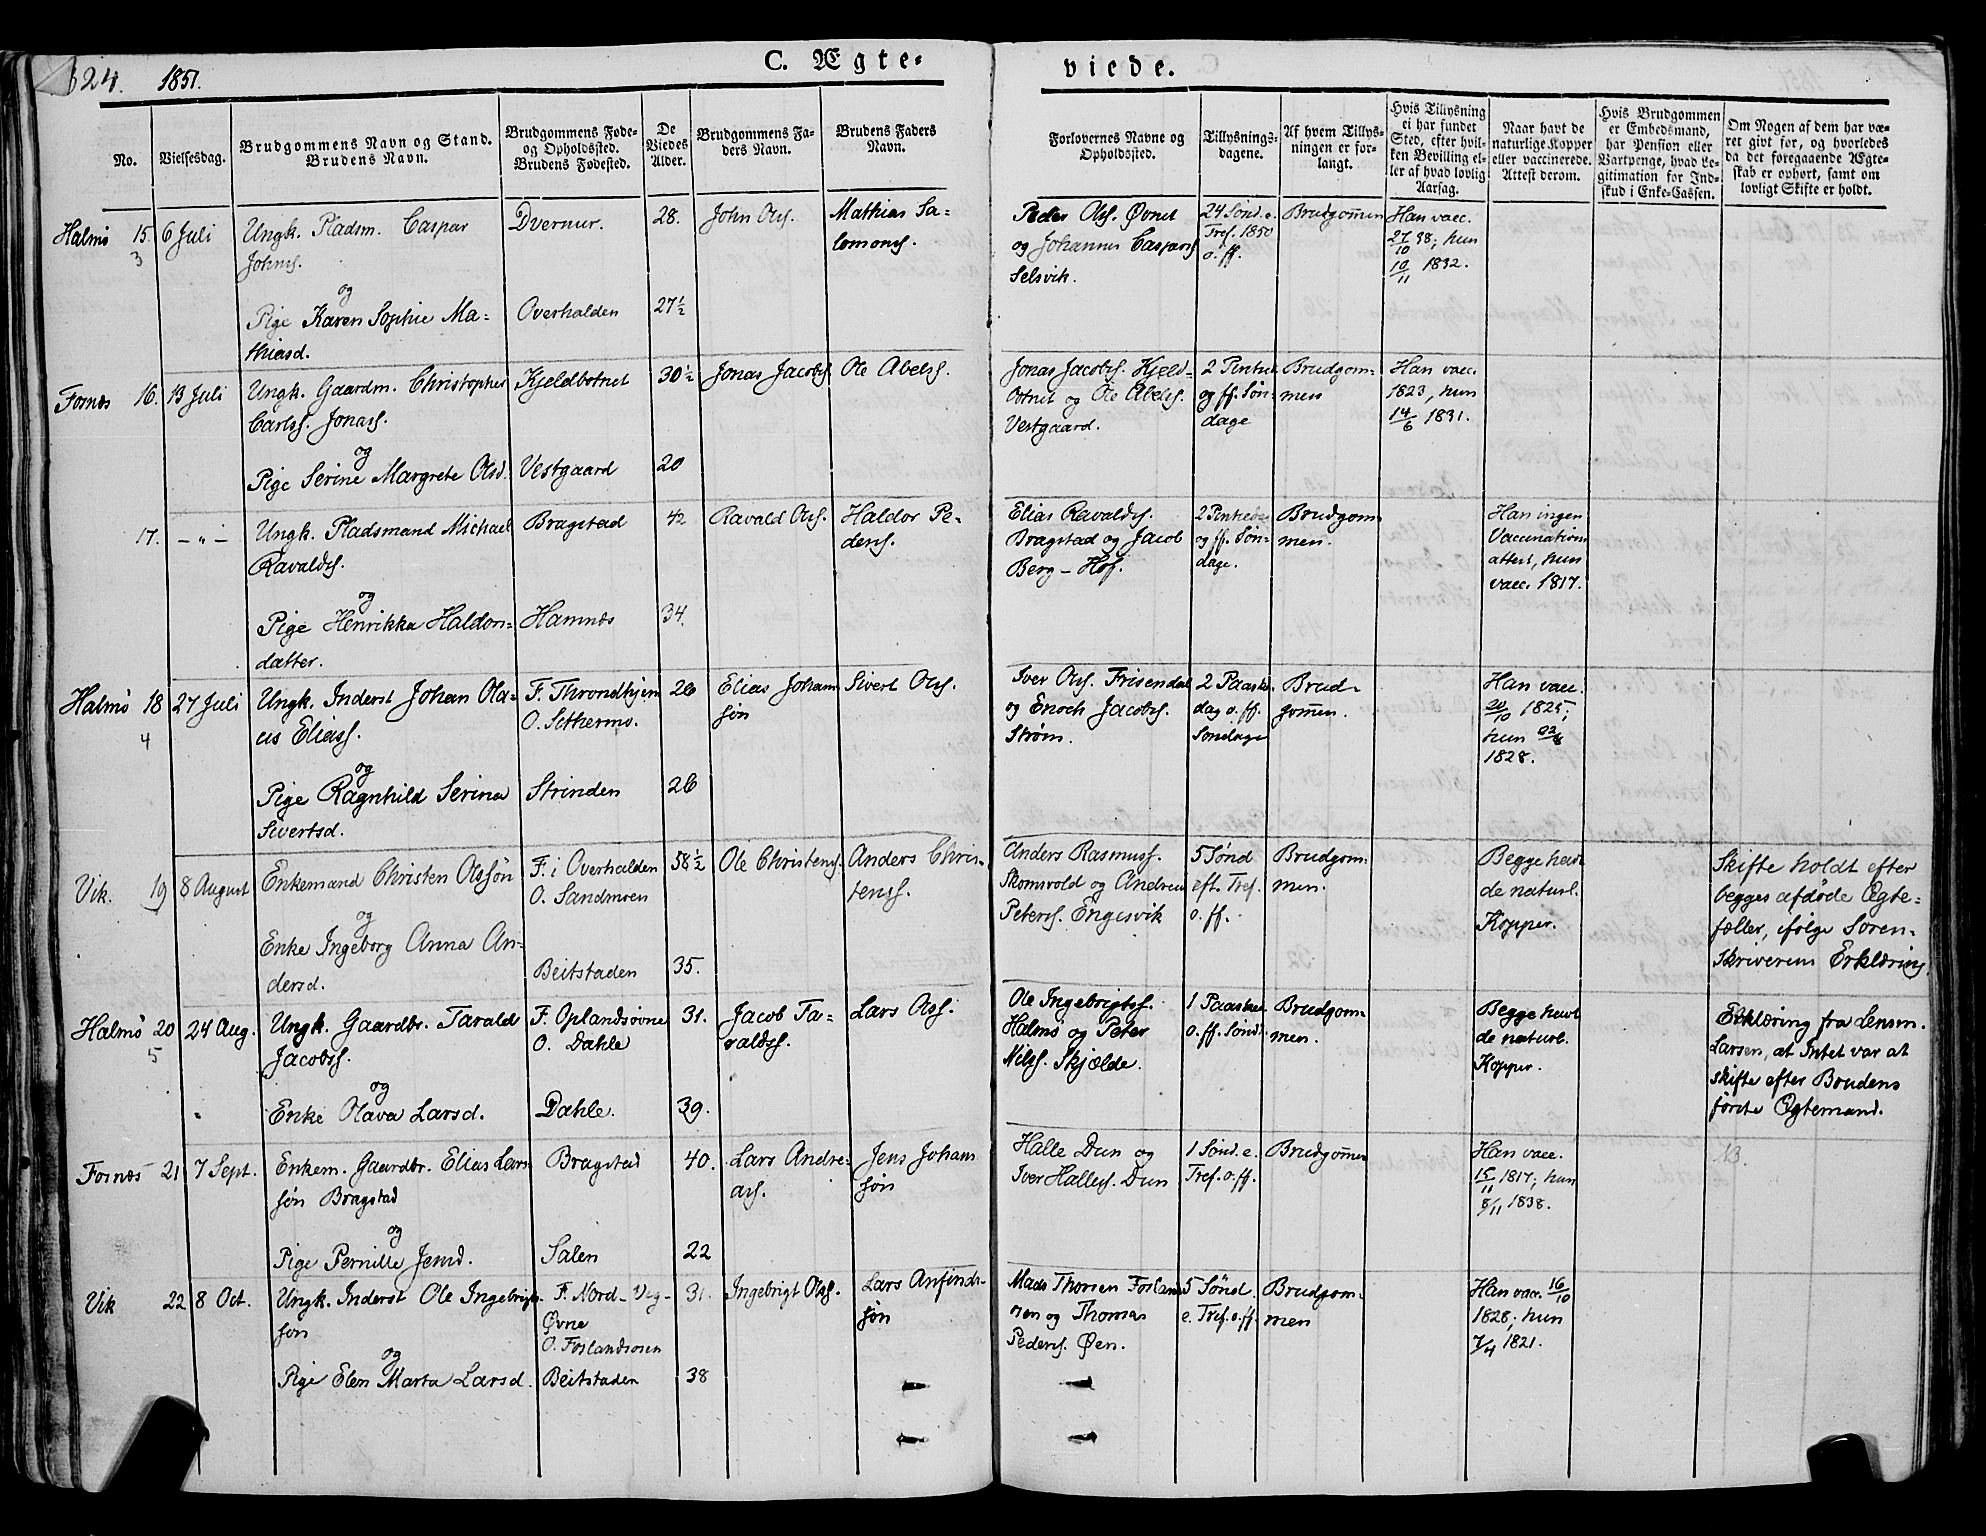 324. 1851. C. Ægte- viede.
No.
Vielsesdag.
Brudgommens Navn og Stand.
Brudens Navn.
Brudgommens Føde-
og Opholdssted.
Brudens Fødested.
De
Viedes
Alder.
Brudgommens Fa-
ders Navn.
Brudens Faders
Navn.
Forlovernes Navne og
Opholdssted.
Tillysnings-
dagene.
Af hvem Tillys-
ningen er for-
langt.
Hvis Tillysning
ei har fundet
Sted, efter hvil-
ken Bevilling el-
ler af hvad lovlig
Aarsag.
Naar havt de
naturlige Kopper
eller vaccinerede.
Attest derom.
Hvis Brudgommen
er Embedsmand,
har Pension eller
Vartpenge, hvad Le-
gitimation for Ind-
skud i Enke-Cassen.
Om Nogen af dem har væ-
ret givt før, og hvorledes
da det foregaaende Ægte-
skab er ophørt, samt om
lovligt Skifte er holdt.
Halmø 15.
3
6 Juli
Ungk. Pladsm. Caspar
Johns.
og
Pige Karen Sophie Ma-
thiasd.
Dvernur.
Overhalden
28.
27½
John Ols.
Mathias Sa-
lomons.
Peder Ols. Øvnet
og Johannes Caspars.
Selsvik.
24 Sønd. e.
Tref. 1850
o. ff.
Brudgom̄en
Han vacc.
27/10 38; hun
10/11 1832.
Fosnæs 16.
13 Juli
Ungk. Gaardm. Christopher
Carls. Jonas.
og
Pige Serine Margrete Olsd.
Kjeldbotnet
Vestgaard
30½
20
Jonas Jacobs.
Ole Abels.
Jonas Jacobs. Kjeld-
botnet og Ole Abels.
Vestgaard.
2 Pintsed.
og ff. Søn-
dage
Brudgom-
men
Han vacc.
1823, hun
14/6 1831.
17.
– „ –
Ungk. Pladsmand Michael
Ravalds.
og
Pige Henrikka Haldors-
datter.
Bragstad
Hamnæs
42
34.
Ravald Ols.
Haldor Pe-
ders.
Elias Ravalds.
Bragstad og Jacob
Berg – Hof.
2 Pintsed.
og ff. Søn-
dage.
Brudgom-
men.
Han ingen
Vaccinations
attest, hun
vacc. 1817.
Halmø 18
4
27 Juli
Ungk. Inderst Johan Ola-
us Elias.
og
Pige Ragnhild Serina
Sivertsd.
F. Throndhjem
O. Sethermo.
Strinden
26
26
Elias Johan
søn
Sivert Ols.
Iver Ols. Frisendal
og Enoch Jacobs.
Strøm.
2 Paaske-
dag o. ff.
Søndage
Brud-
gom̄en.
Han vacc.
20/10 1825;
hun 22/8
1828.
Vik. 19
8 August
Enkemand Christen Olssøn
og
Enke Ingeborg Anna An-
dersd.
F. i Overhalden
O. Sandmoen
Beitstaden
58½
35.
Ole Christens.
Anders Chris-
tens.
Anders Rasmuss.
Skomsvold og Andreas
Peters. Engesvik
5 Sønd
eft. Tref.
o. ff.
Brudgom-
men.
Begge havt
de naturl.
Kopper.
Skifte holdt efter
begges afdøde Ægte-
fæller, ifølge Soren-
skriverens Erklæring
Halmø 20
5
24 Aug.
Ungk. Gaardbr. Tarald
Jacobs.
og
Enke Olava Larsd.
F. Oplandsøvne
O. Dahle
Dahle.
31.
39.
Jacob Ta-
ralds.
Lars Ols.
Ole Ingebrigts.
Halmø og Peter
Nils. Skjælde.
1 Paasked.
o. ff. Sønd.
Brudgom-
men.
Begge havt
de naturl.
Kopper.
Erklæring fra Lensm.
Larsen, at Intet var at
skifte efter Brudens
første Ægtemand.
Fosnæs 21
7 Sept.
Enkem. Gaardbr. Elias Lars
søn Bragstad
og
Pige Pernille Jensd.
Bragstad
Salen
40.
22
Lars Andre-
as.
Jens Johan
søn
Halle Dun og
Iver Halles. Dun
1 Sønd. e.
Tref. o. ff.
Brudgom̄en
Han vacc.
15/11 1817; hun
8/11 1838.
NB.
Vik 22
8 Oct.
Ungk. Inderst Ole Ingebrigt-
søn
og
Pige Elen Marta Larsd.
F. Nord-
Øvne
O. Foslandsosen
Beitstaden
31.
38
Ingebrigt Ols.
Lars Anfinds-
søn
Mads Thorsen Foslands-
osen og Thomas
Peders. Øen.
5 Sønd.
e. Tref. o. ff.
Brudgom-
men
Han vacc. 16/10
1828; hun
7/4 1821.